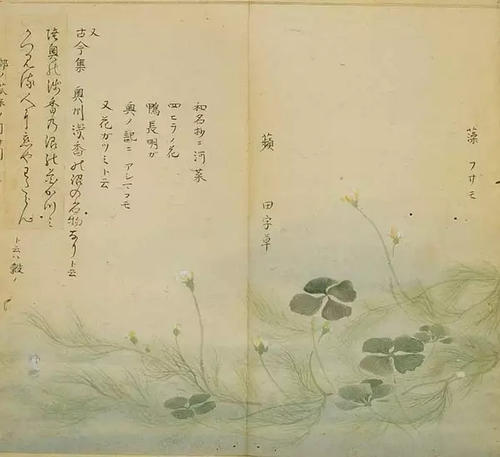 藻 フサモ
蘋 田字草
和名抄ニ河菜
四ヒラノ花
鴨長明ガ
奥ノ記ニ
又花ガツミト云
又
古今集 奥州浅香の沼の名物なりト云
陸奥の浅香乃沼の花か川ミ
かつみる人に恋やわたらん
ト云ハ穀ノ